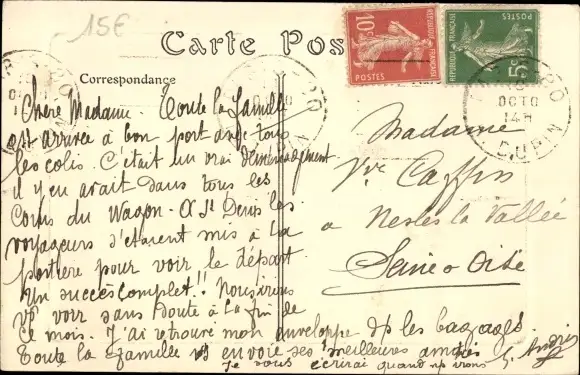 15€
Carte Pos
Correspondance
Chère Madame. Toute la famille
est arrivée à bon port avec tous
les colis. C'était un vrai déménagement
il y en avait dans tous les
coins du Wagon. A St Denis les
voyageurs s'étaient mis à la
portière pour voir le départ
Un succès complet!! Nous irons
vs voir sans doute à la fin de
ce mois. J'ai retrouvé mon enveloppe ds les bagages.
Toute la famille vs envoie ses meilleures amitiés
Je vous écrirai quand ns irons
Madame
Vve
à Nesles la Vallée
Seine & Oise
10c
REPUBLIQUE FRANÇAISE
POSTES
5c
REPUBLIQUE FRANÇAISE
POSTES
OCTO
14H